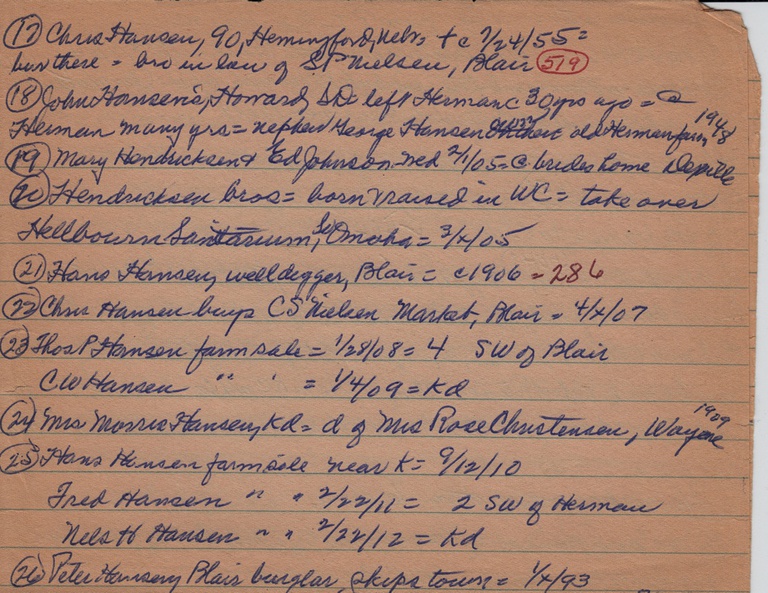 (17) Chris Hansen, 90, Hemingford, Nebr + c 7/24/55 =
bur there = bro in law of S.P. Nielsen, Blair (519)
(18) John Hansen's, Howard, SD left Herman c 30 yrs ago = @ 1948
Herman many yrs = nephew George Hansen old Herman farm
(19) Mary Hendricksen & Ed Johnson wed 2/1/05 = @ brides home
(20) Hendricksen bros = born & raised in WC = take over
Hellbourn Sanitarium, So Omaha = 3/x/05
(21) Hans Hansen, welldegger, Blair = c1906 = 286
(22) Chris Hansen buys CS Nielsen Market, Blair = 4/x/07
(23) Thos P Hansen farm sale = 1/28/08 = 4 SW of Blair
CW Hansen " " = 1/4/09 = Kd
(24) Mrs Morris Hansen, Kd = d of Mrs Rose Christensen, Wayne 1909
(25) Hans Hansen farm sale near K = 9/12/10
Fred Hansen " " 2/22/11 = 2 SW of Herman
Nels H Hansen " " 2/22/12 = Kd
(26) Peter Hansen, Blair burglar, skips town = 1/x/93